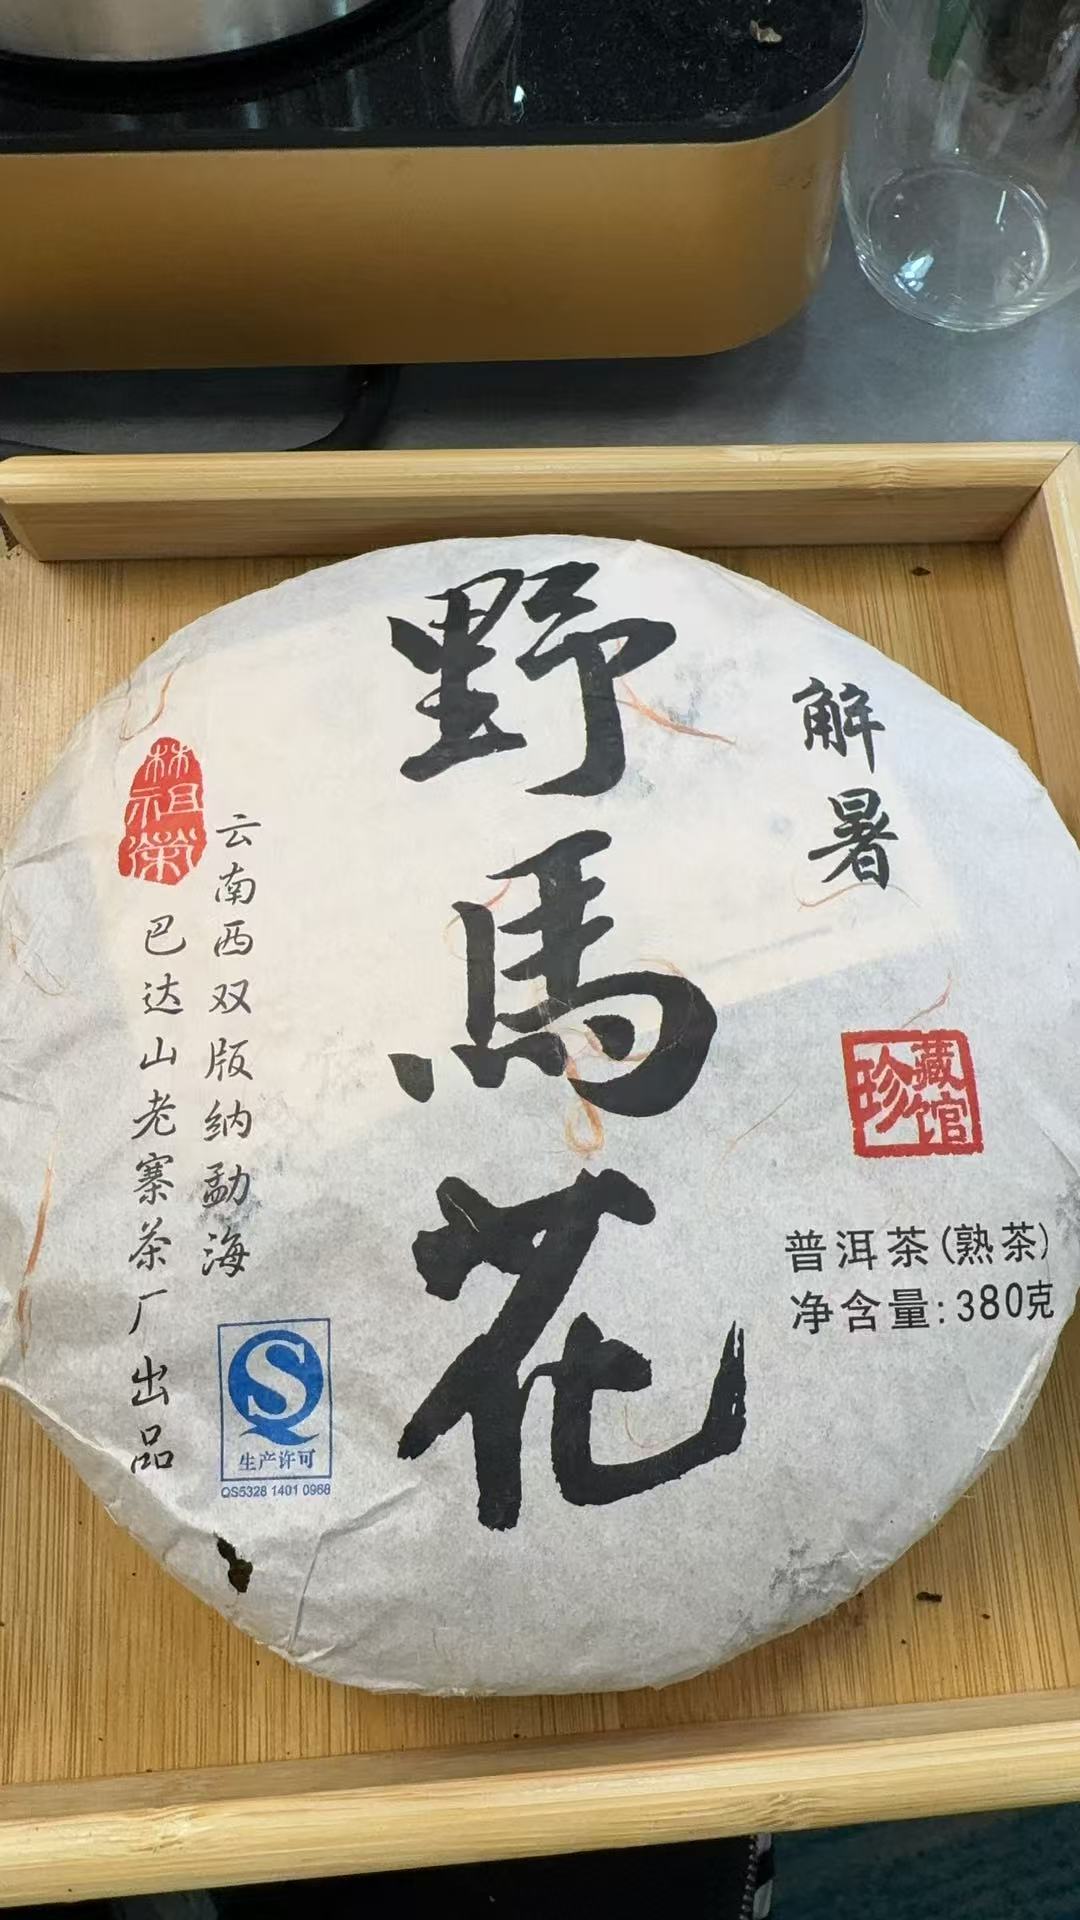 野馬花
解暑
珍藏馆
普洱茶(熟茶)
净含量:380克
林祖榮
云南西双版纳勐海
巴达山老寨茶厂出品
QS
生产许可
QS5328 1401 0968